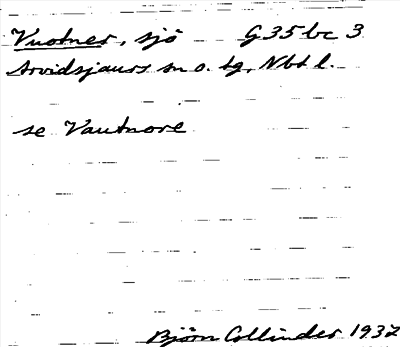 Vuotner, sjö G 35 bc 3
Arvidsjaurs sn o. tg, Nbt l.
se Vautnore
Björn Collinder 1932